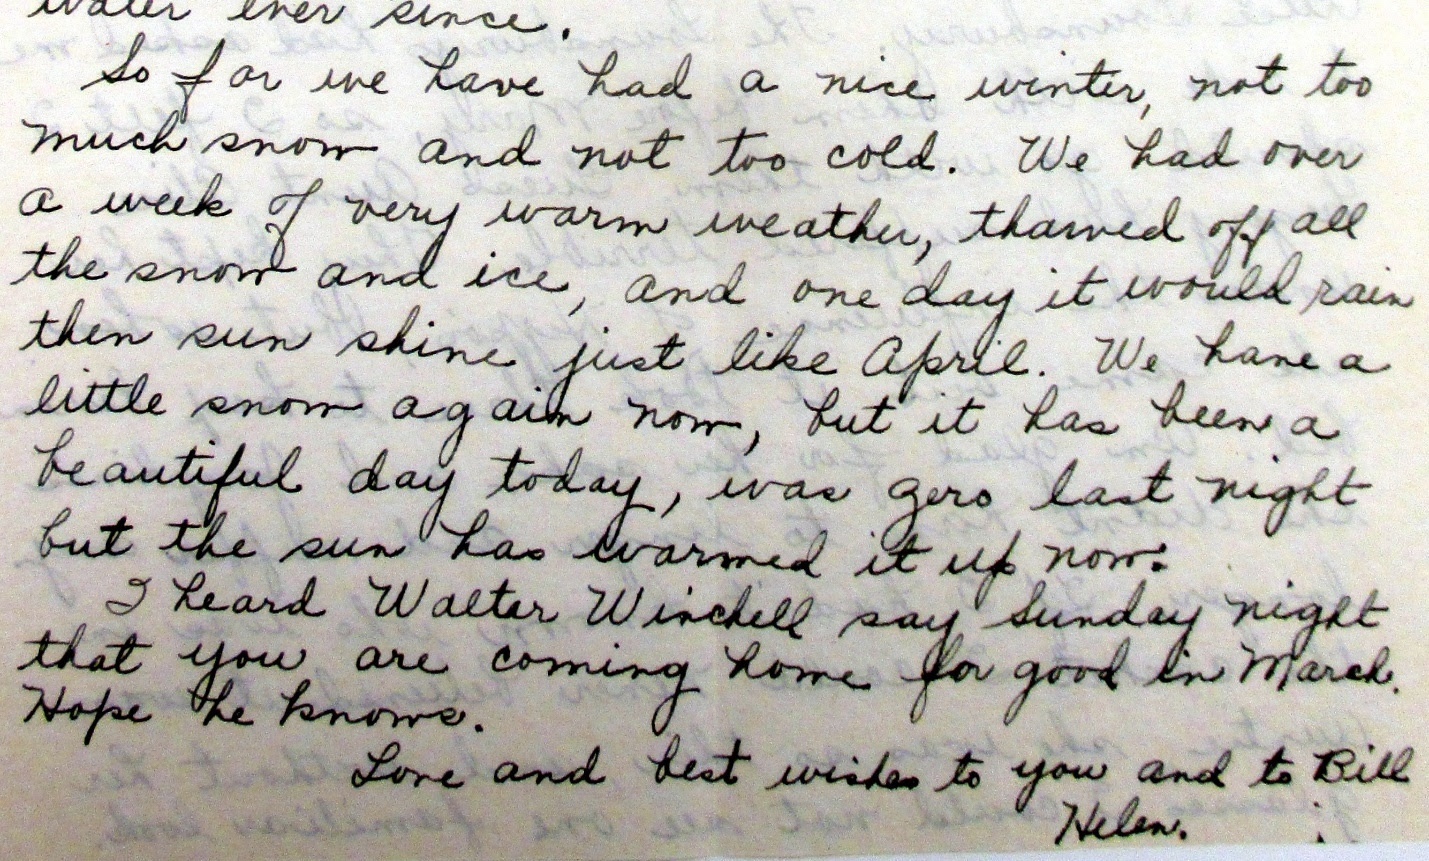 water ever since.
So far we have had a nice winter, not too
much snow and not too cold. We had over
a week of very warm weather, thawed off all
the snow and ice, and one day it would rain
then sun shine just like April. We have a
little snow again now, but it has been a
beautiful day today, was zero last night
but the sun has warmed it up now.
I heard Walter Winchell say Sunday night
that you are coming home for good in March.
Hope he knows.
Love and best wishes to you and to Bill
Helen.